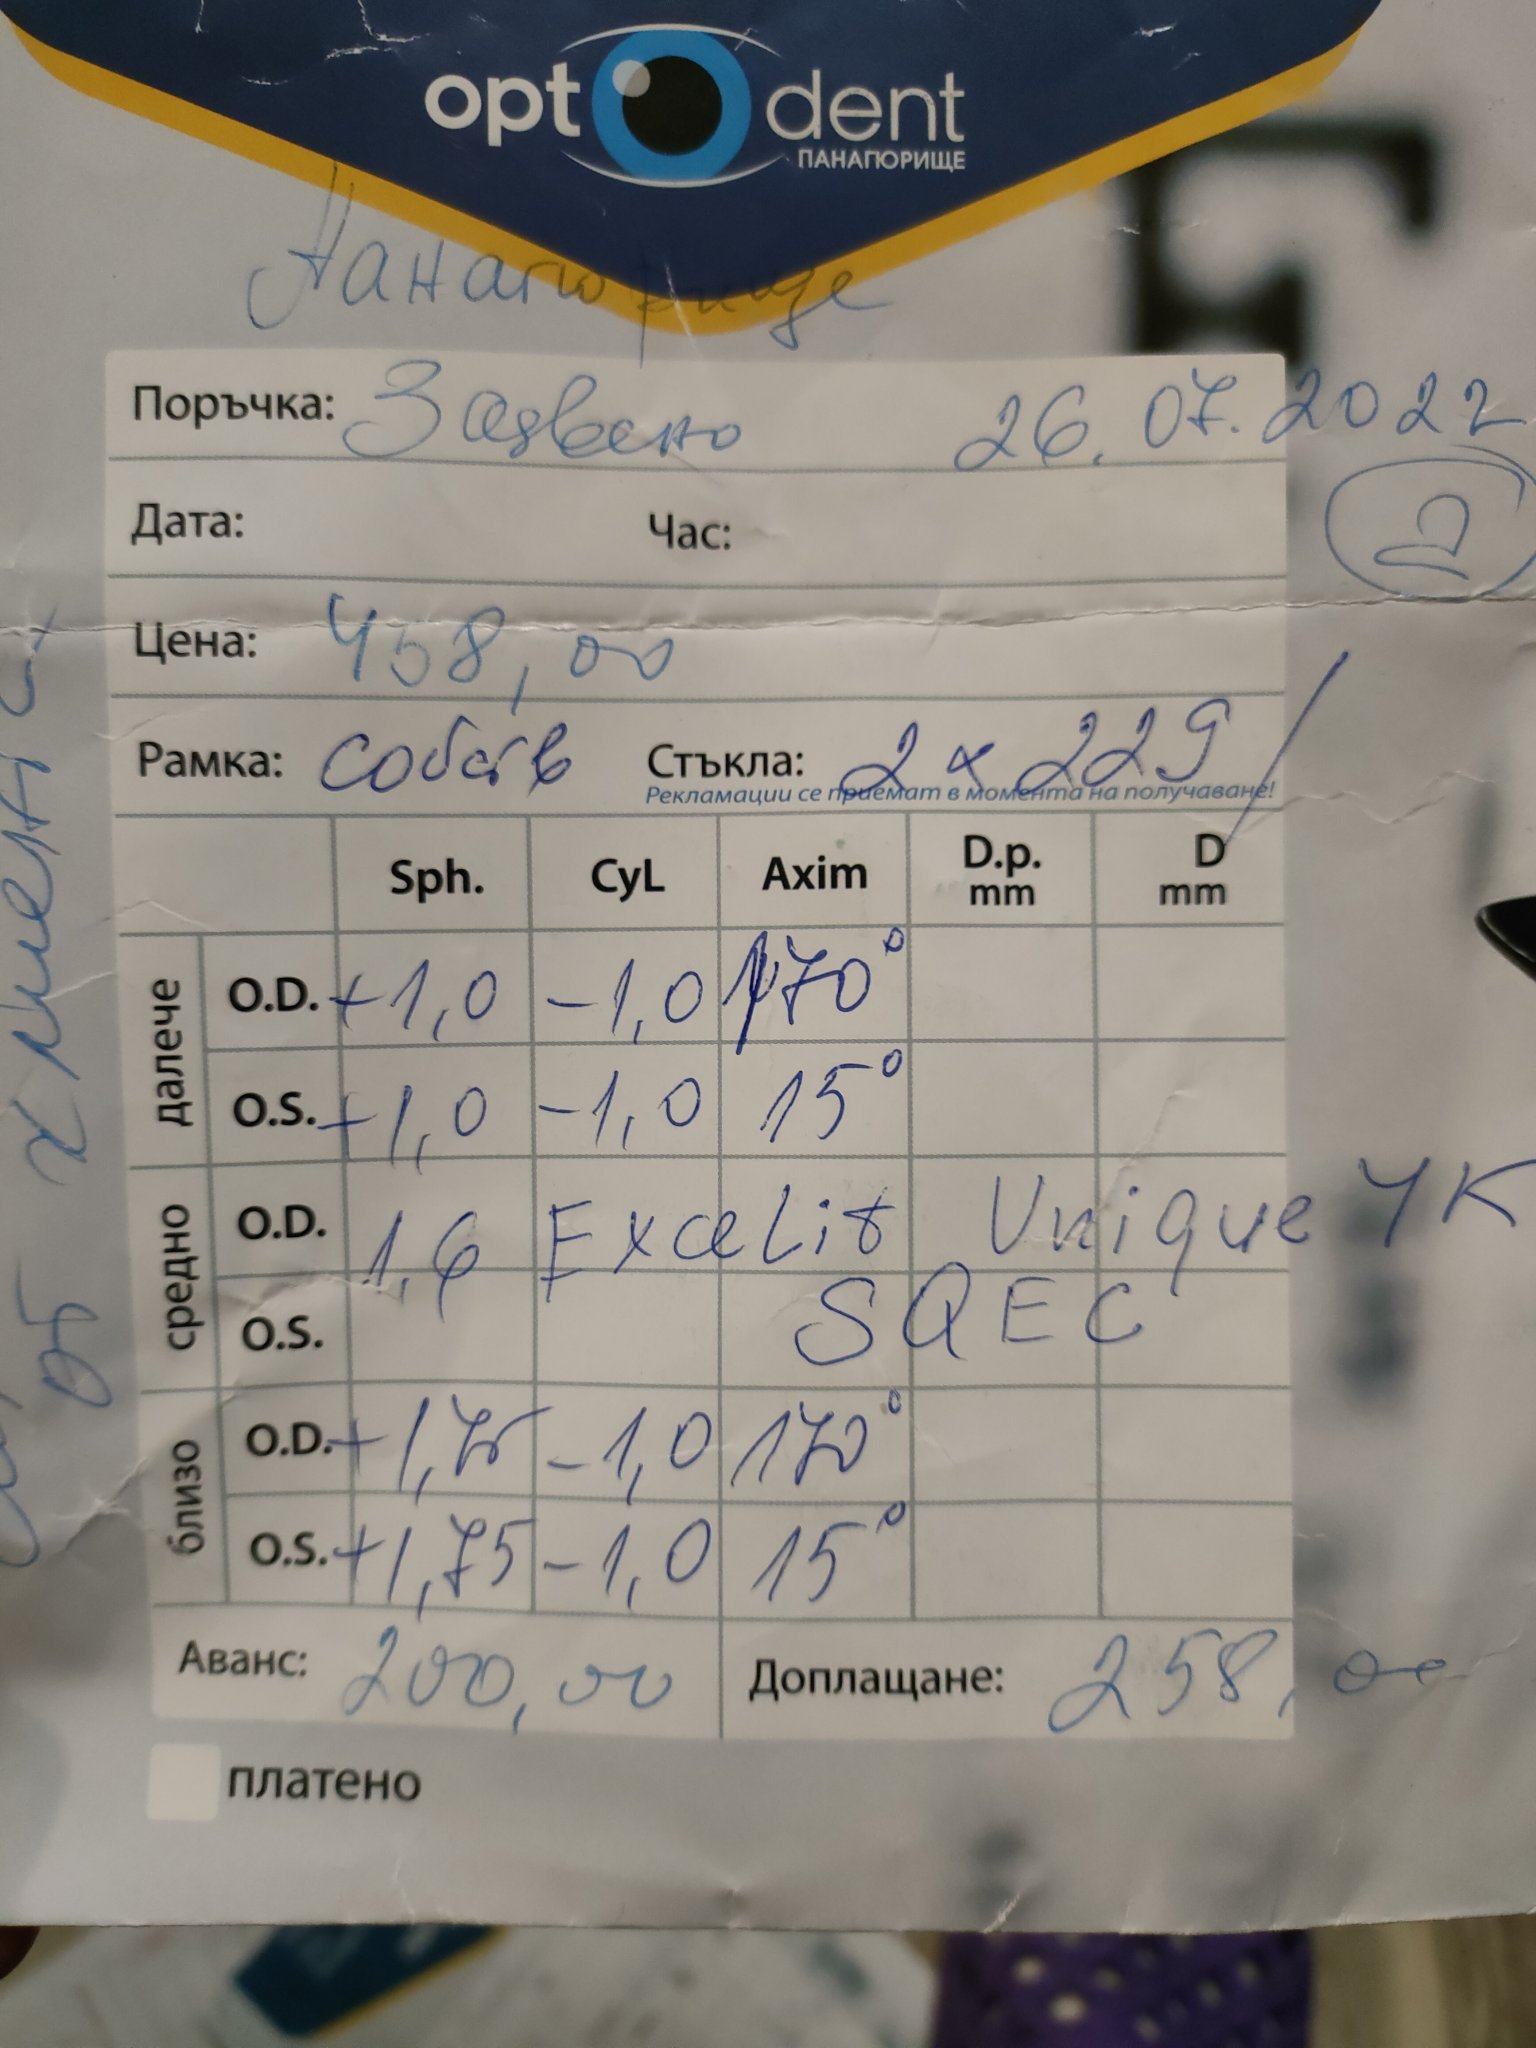 opt dent
ПАНАГЮРИЩЕ
Панагюрище
Поръчка: Заявено 26.07.2022
Дата: Час:
2
Цена: 458,00
Рамка: собств Стъкла: 2 x 229
Рекламации се приемат в момента на получаване!
Sph. CyL Axim D.p. mm D mm
далече
O.D. +1,0 -1,0 170°
O.S. +1,0 -1,0 15°
средно
O.D. 1.6 Excelit Unique ЧК
O.S. SQEC
близо
O.D. +1,75 -1,0 170°
O.S. +1,75 -1,0 15°
Аванс: 200,00 Доплащане: 258,00
платено
от клиента